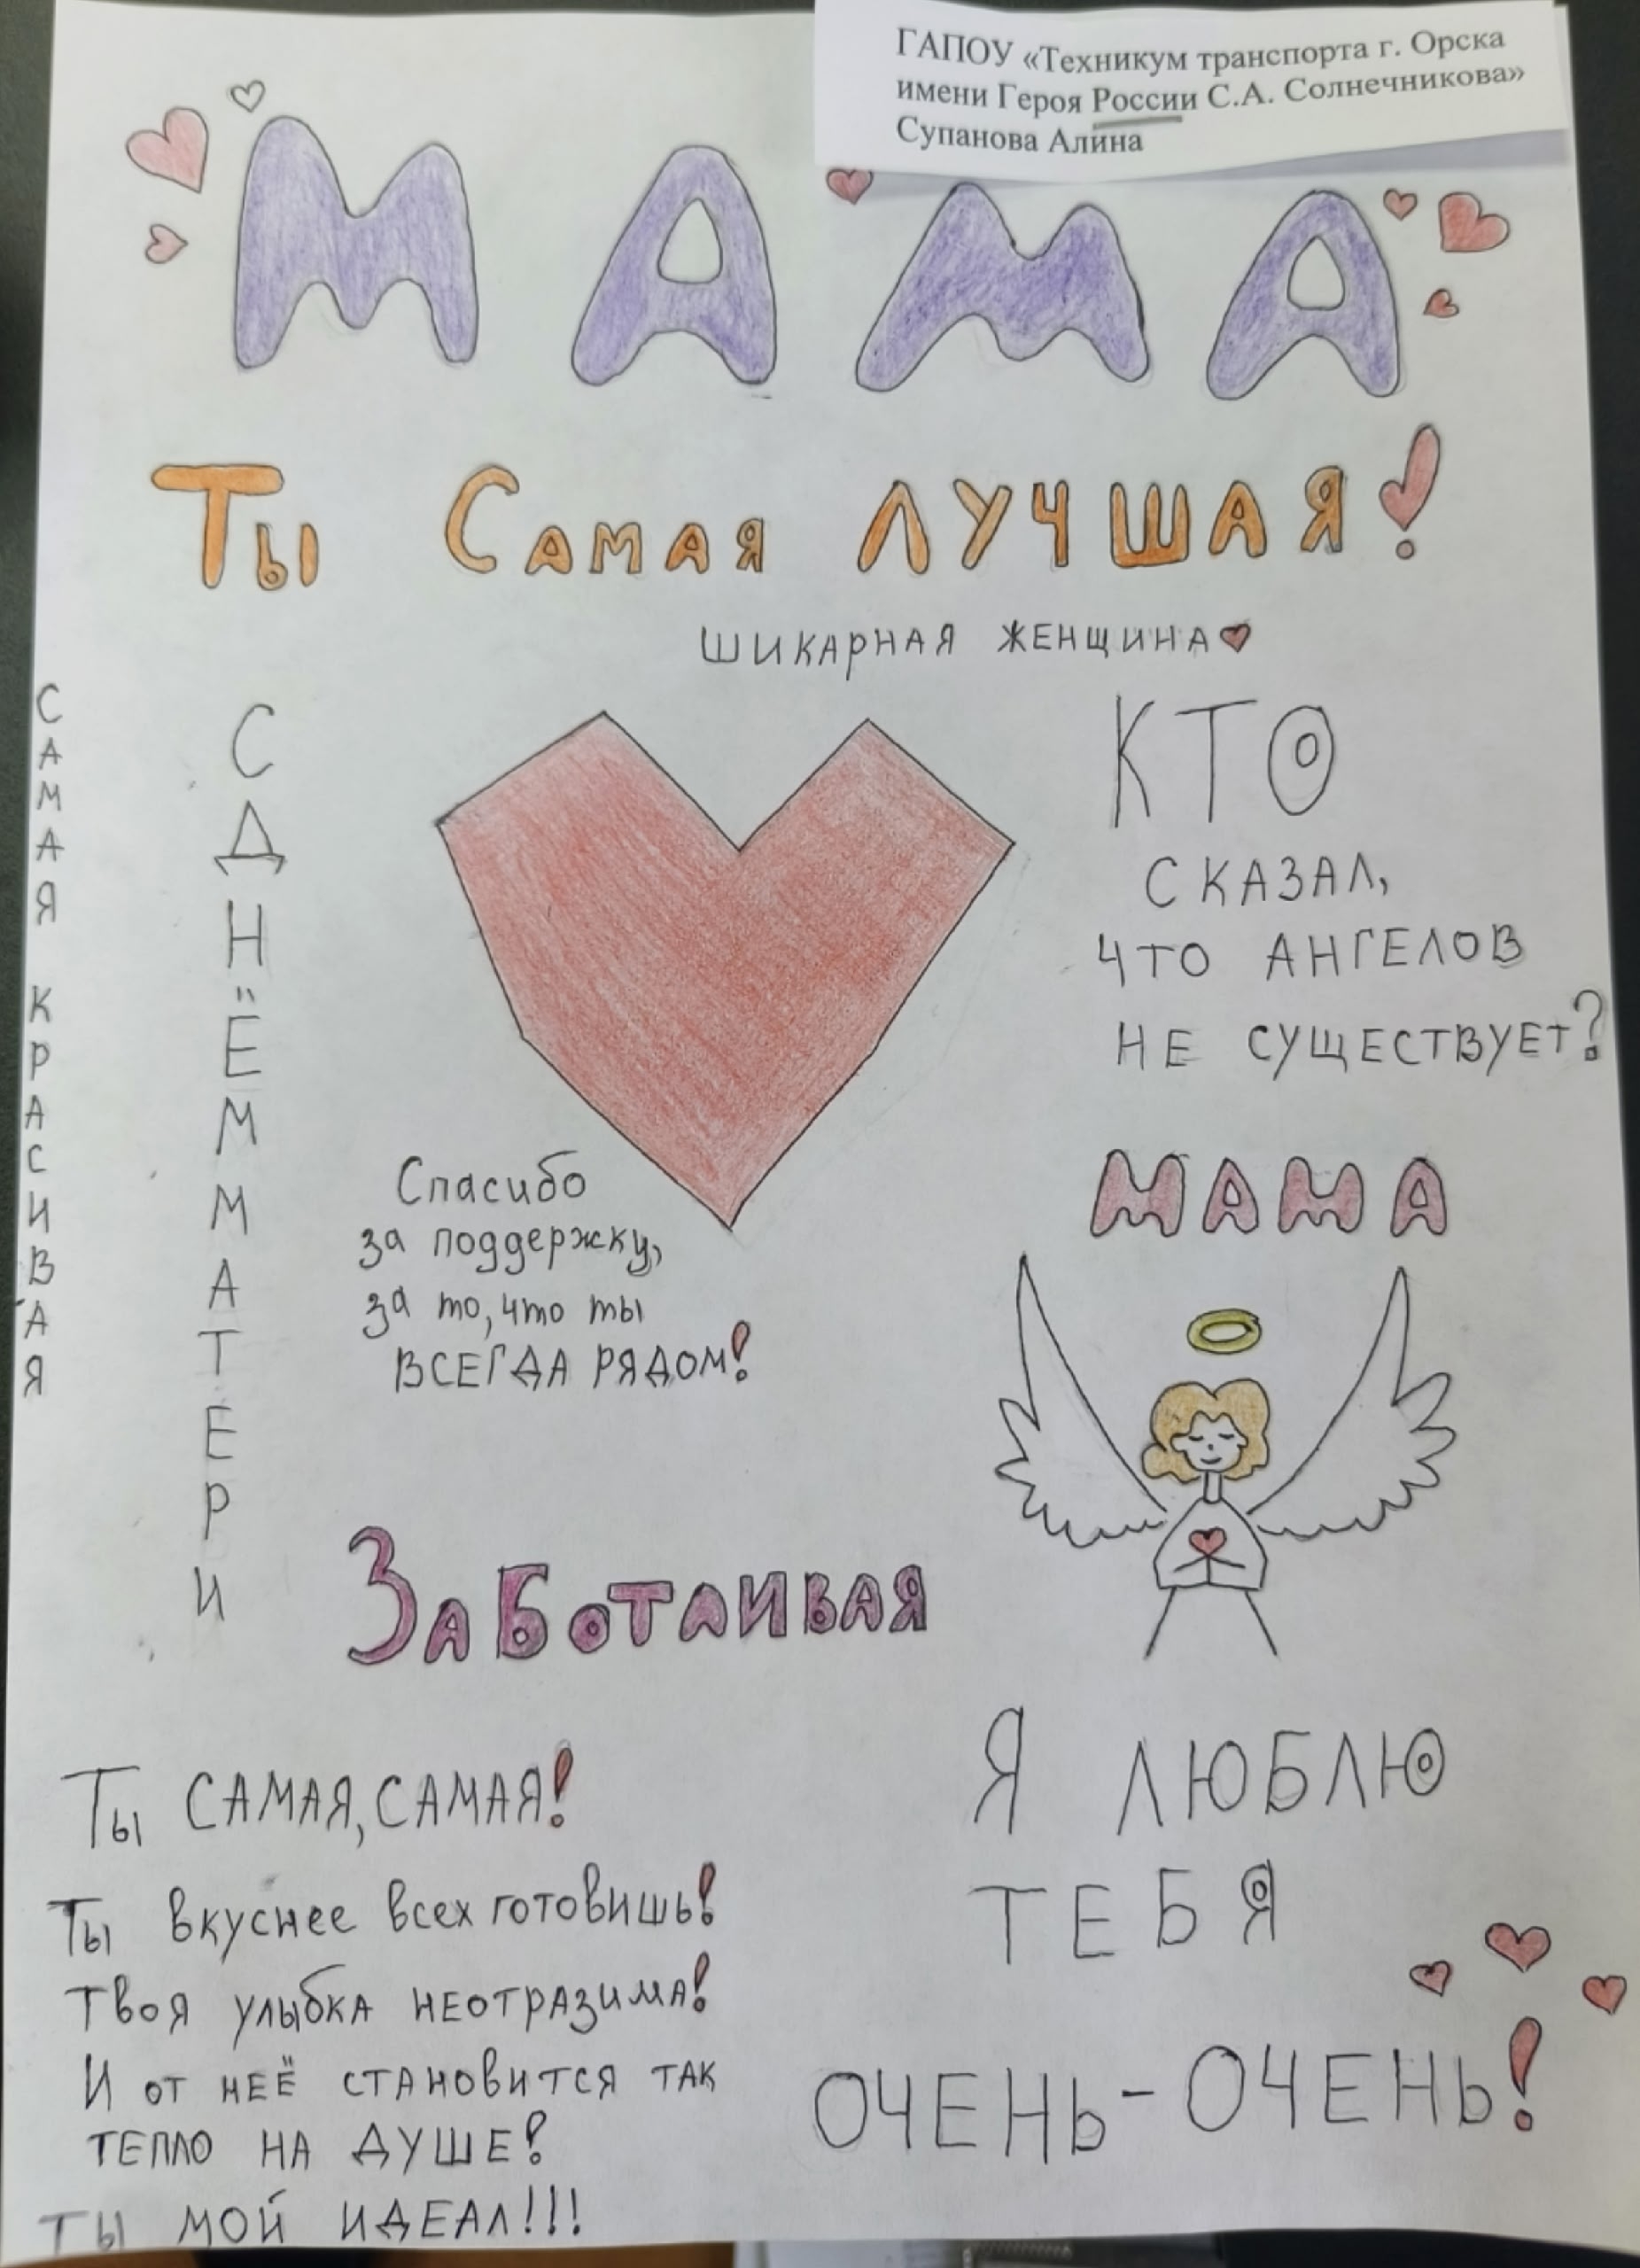 ГАПОУ «Техникум транспорта г. Орска
имени Героя России С.А. Солнечникова»
Супанова Алина
МАМА
Ты Самая ЛУЧШАЯ!
ШИКАРНАЯ ЖЕНЩИНА
САМАЯ КРАСИВАЯ
С ДНЁМ МАТЕРИ
КТО
СКАЗАЛ,
ЧТО АНГЕЛОВ
НЕ СУЩЕСТВУЕТ?
МАМА
Спасибо
за поддержку,
за то, что ты
ВСЕГДА РЯДОМ!
ЗаБОТАИВАЯ
Ты САМАЯ, САМАЯ!
Ты вкуснее всех готовишь!
Твоя улыбка неотразима!
И от неё становится так
тепло на душе!
Ты мой идеал!!!
Я ЛЮБЛЮ
ТЕБЯ
ОЧЕНЬ-ОЧЕНЬ!